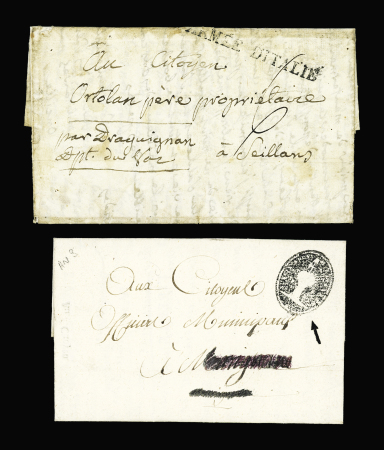 ARMÉE D'ITALIE
Au Citoyen
Ortolan père propriétaire
par Draguignan
Dpt. du Var
à Seillans
AN 3
Aux Citoyens
Municipaux
à